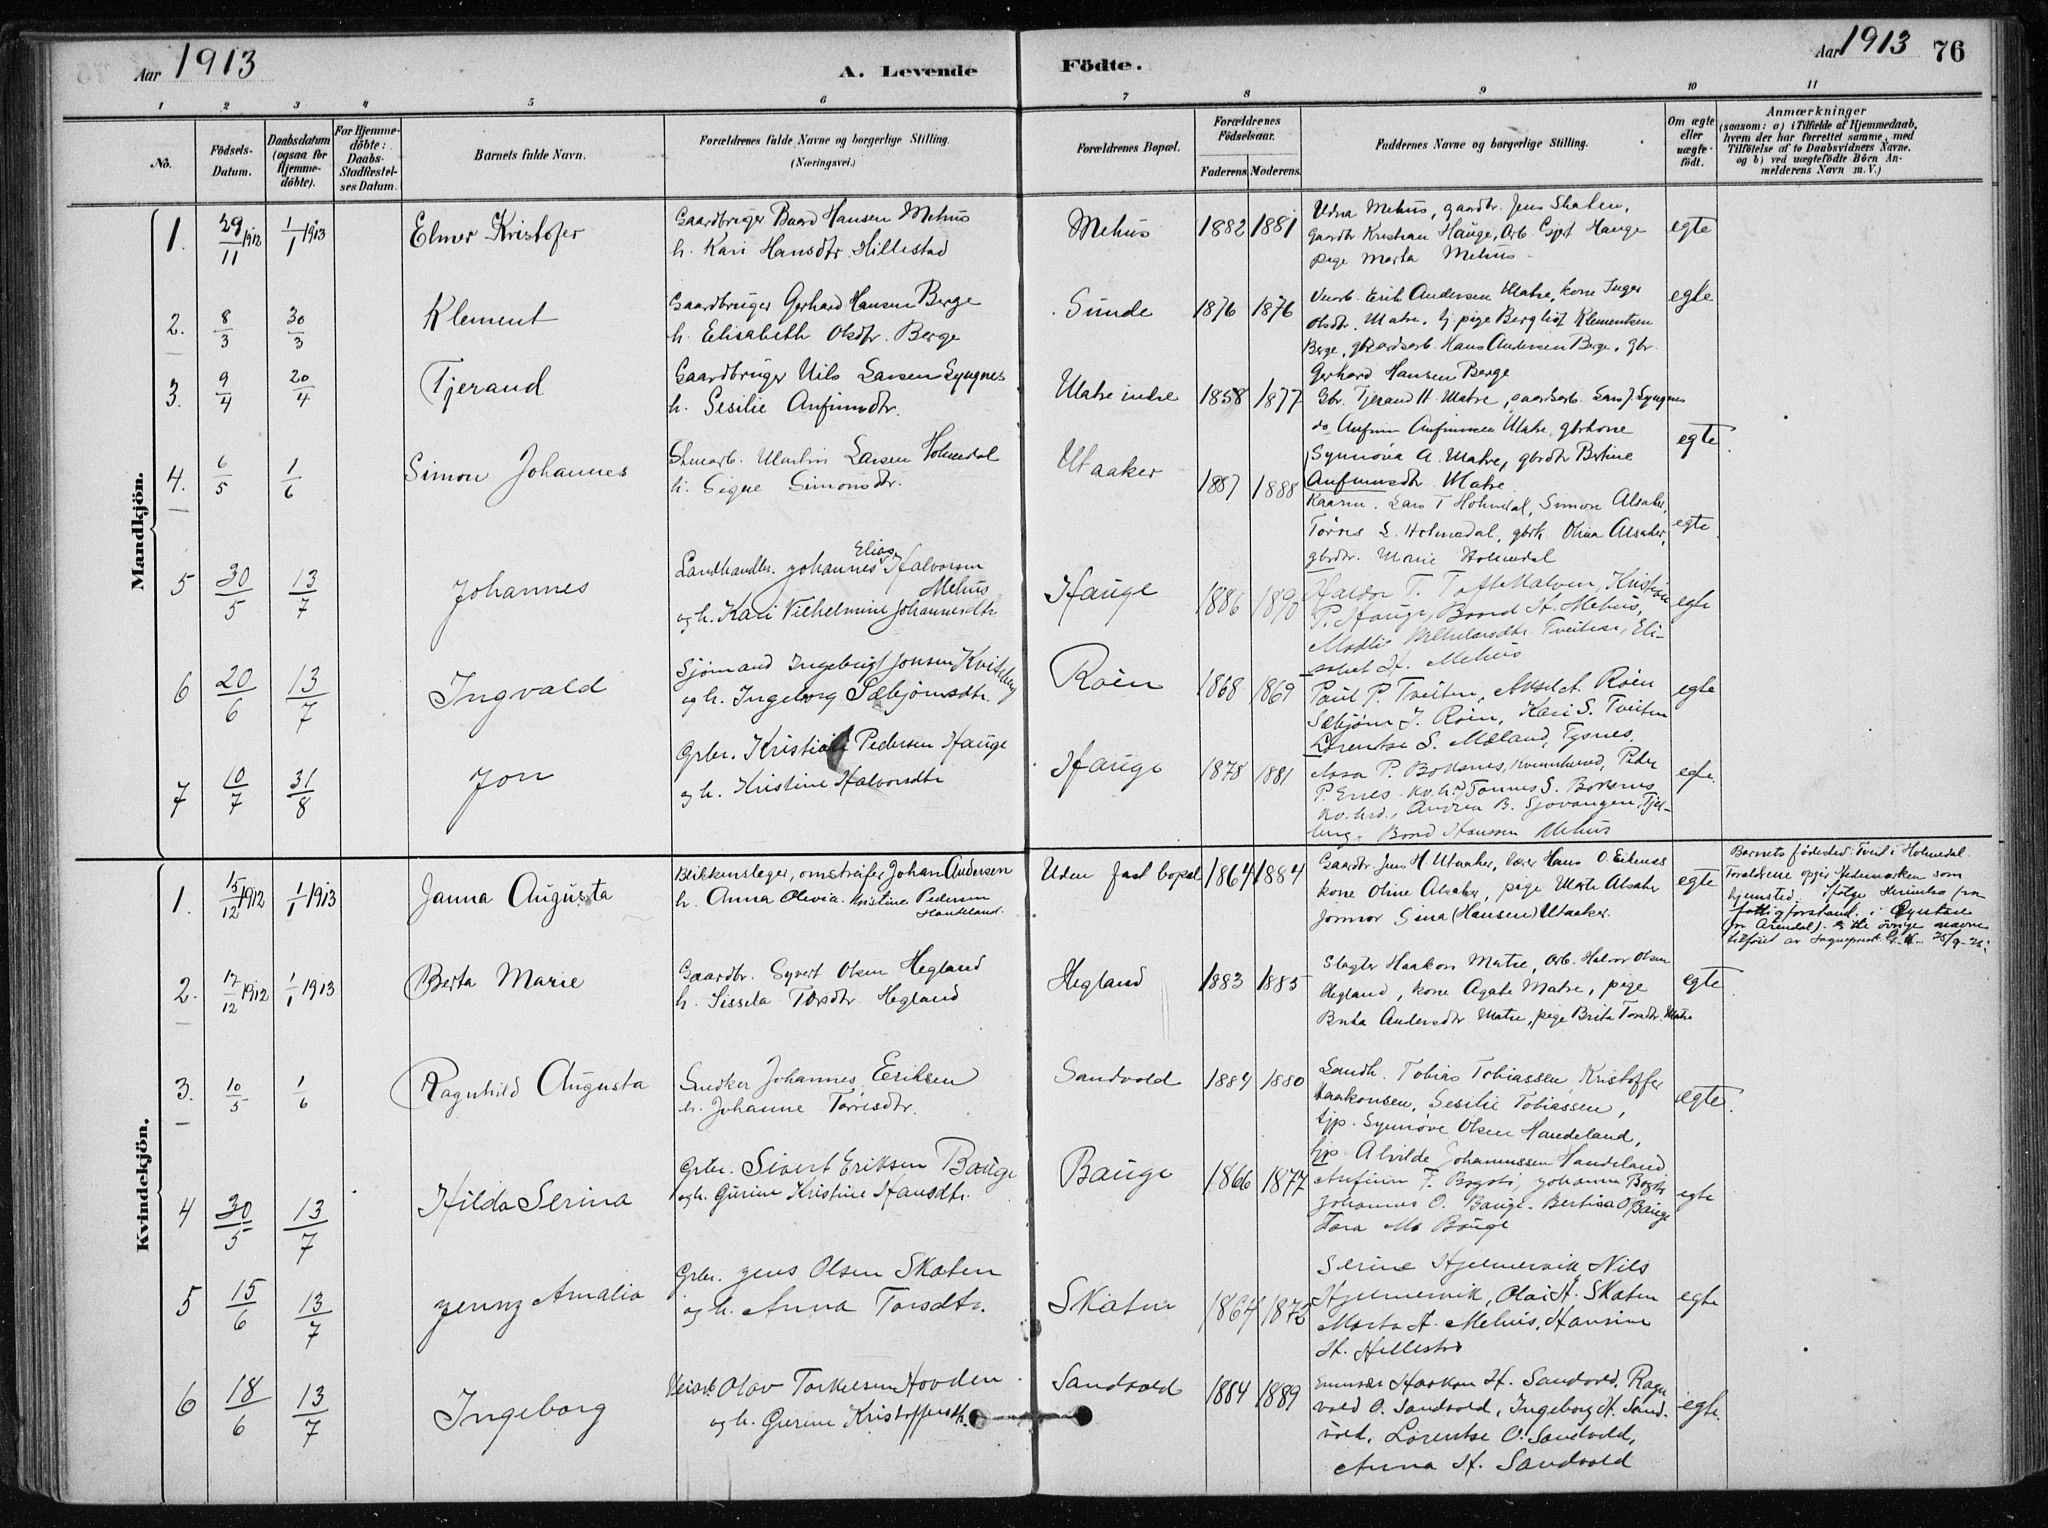 Aar 1913
A. Levende Födte.
Aar 1913 76
1 2 3 4 5 6 7 8 9 10 11
No.
Födsels-Datum.
Daabsdatum (ogsaa for Hjemme-döbte).
For Hjemme-döbte: Daabs-Stadfæstel-ses Datum.
Barnets fulde Navn.
Forældrenes fulde Navne og borgerlige Stilling. (Næringsvei.)
Forældrenes Bopæl.
Forældrenes Födselsaar.
Faderens. Moderens.
Faddernes Navne og borgerlige Stilling.
Om ægte eller uægte födt.
Anmærkninger
(saasom: a) i Tilfælde af Hjemmedaab, hvem der har forrettet samme, med Tilföielse af to Daabsvidners Navne, og b) ved uægtefödte Börn An-melderens Navn m. V.)
Mandkjön.
1. 29/11 1912 1/1 1913 Elmer Kristofer
Gaardbruger Baard Hansen Mehus
h. Kari Hansdtr. Hillestad
Mehus 1882 1881
Edna Mehus, gaardbr. Jens Skaten,
Gaardbr Kristian Hauge, Arb. Hauge
pige Marta Mehus
egte
2. 8/3 30/3 Klement
Gaardbruger Gerhard Hansen Berge
h. Elisabeth Olsdtr. Berge
Sunde 1876 1876
Erik Andersen Matre, kone Inger
Olsdtr. Matre, pige Bergliot Klementsen
Berge, Hans Andersen Berge, gbr.
Gerhard Hansen Berge
egte
3. 9/4 20/4 Tjerand
Gaardbruger Nils Larsen Lyngnes
h. Sesilie Anfinnsdtr.
Matre indre 1858 1877
Gbr. Tjerand H. Matre, Lars J. Lyngnes
do Anfinn Anfinnsen Matre, gbrkone
Synnöva A. Matre, gbrdtr Bertine
Anfinnsdtr Matre
egte
4. 6/5 1/6 Simon Johannes
Martin Larsen Holmedal
h. Signe Simonsdtr.
Utaaker 1887 1888
Lars T Holmedal, Simon Alsaker,
Törres L. Holmedal, gbrk. Olina Alsaker,
gbrdtr. Marie Holmedal
egte
5 30/5 13/7 Johannes
Landhandler. Johannes Elias Halvorsen
Mehus
og h. Kari Vilhelmine Johannesdtr.
Hauge 1886 1890
Haldor T. Toftekalven, Kristian
P. Hauge, Baard H. Mehus,
Tveiten, Eli-
sabet H. Mehus
egte
6 20/6 13/7 Ingvald
Sjömand Ingebrigt Jonsen
og h. Ingeborg Sæbjörnsdtr.
Röen 1868 1869
Paul P. Tveiten, Röen
Sæbjörn J. Röen, Kari S. Tveiten
Lorentse S. Mæland, Tysnes.
egte
7 10/7 31/8 Jon
Grbr. Kristian Pedersen Hauge
og h. Kristine Halvorsdtr
Hauge 1878 1881
P. Boksnes, Kvinnherad, Peder
P. Enes Kv.h.d, Tönnes S. Boksnes
Kv.hrd., Andrea B. Sjovangen, Tjel-
Baard Hansen Mehus
egte
Kvindekjön.
1. 15/12 1912 1/1 1913 Janna Augusta
Blikkenslager, omstreifer Johan Andersen
h. Anna Olevia Kristine Pedersen
Haukeland
Uden fast bopæl 1864 1884
Gaardbr Jens H. Utaaker, lærer Hans O. Eikenes
kone Oline Alsaker, pige Marta Alsaker
Jomnor Sina (Hansen) Utaaker.
egte
Barnets födested: Tveit i Holmedal.
Forældrene opgir Hedemarken som
hjemsted. Ifølge fra
fattigforstand. i Öyestad
(ved Arendal). övrige navne
tilföiet av Sogneprest
2. 17/12 1912 1/1 1913 Berta Marie
Gaardbr. Syvert Olsen Hegland
h. Sissela Torsdtr Hegland
Hegland 1883 1885
Slagter Haakon Matre, Arb. Halvor Olsen
Hegland, kone Agate Matre, pige
Brita Andersdtr. Matre, pige Brita Torsdtr. Matre
egte
3. 10/5 1/6 Ragnhild Augusta
Snedker Johannes Eriksen
h. Johanne Törresdtr.
Sandvold 1884 1880
Landh. Tobias Tobiassen, Kristoffer
Haakonsen, Sesilie Tobiassen,
tjp. Synnöve Olsen Handeland,
tjp. Alvilde Johannessen Handeland
egte.
4 30/5 13/7 Hilda Serina
Grbr. Sivert Eriksen Bauge
og h. Gurine Kristine Hansdtr.
Bauge 1866 1877
Anfinn F. Bogsti, Johanna Bogsti
Johannes O. Bauge. Bertina O Bauge
Tora M. Bauge
egte
5 15/6 13/7 Jenny Amalia
Grbr. Jens Olsen Skaten
og h. Anna Torsdtr.
Skaten 1864
Serine Hjelmervik Nils
Hjelmervik, Olai H. Skaten
Marta H. Mehus, Hansine
H. Hillestad
egte
6 18/6 13/7 Ingeborg
Olav Torkelsen Hovden
og h. Gurine Kristoffersdtr.
Sandvold 1884 1889
Haakon H. Sandvold, Ragn-
vald O. Sandvold, Ingeborg H. Sand-
vold, Lorentse O. Sandvold,
Anna H. Sandvold
egte.